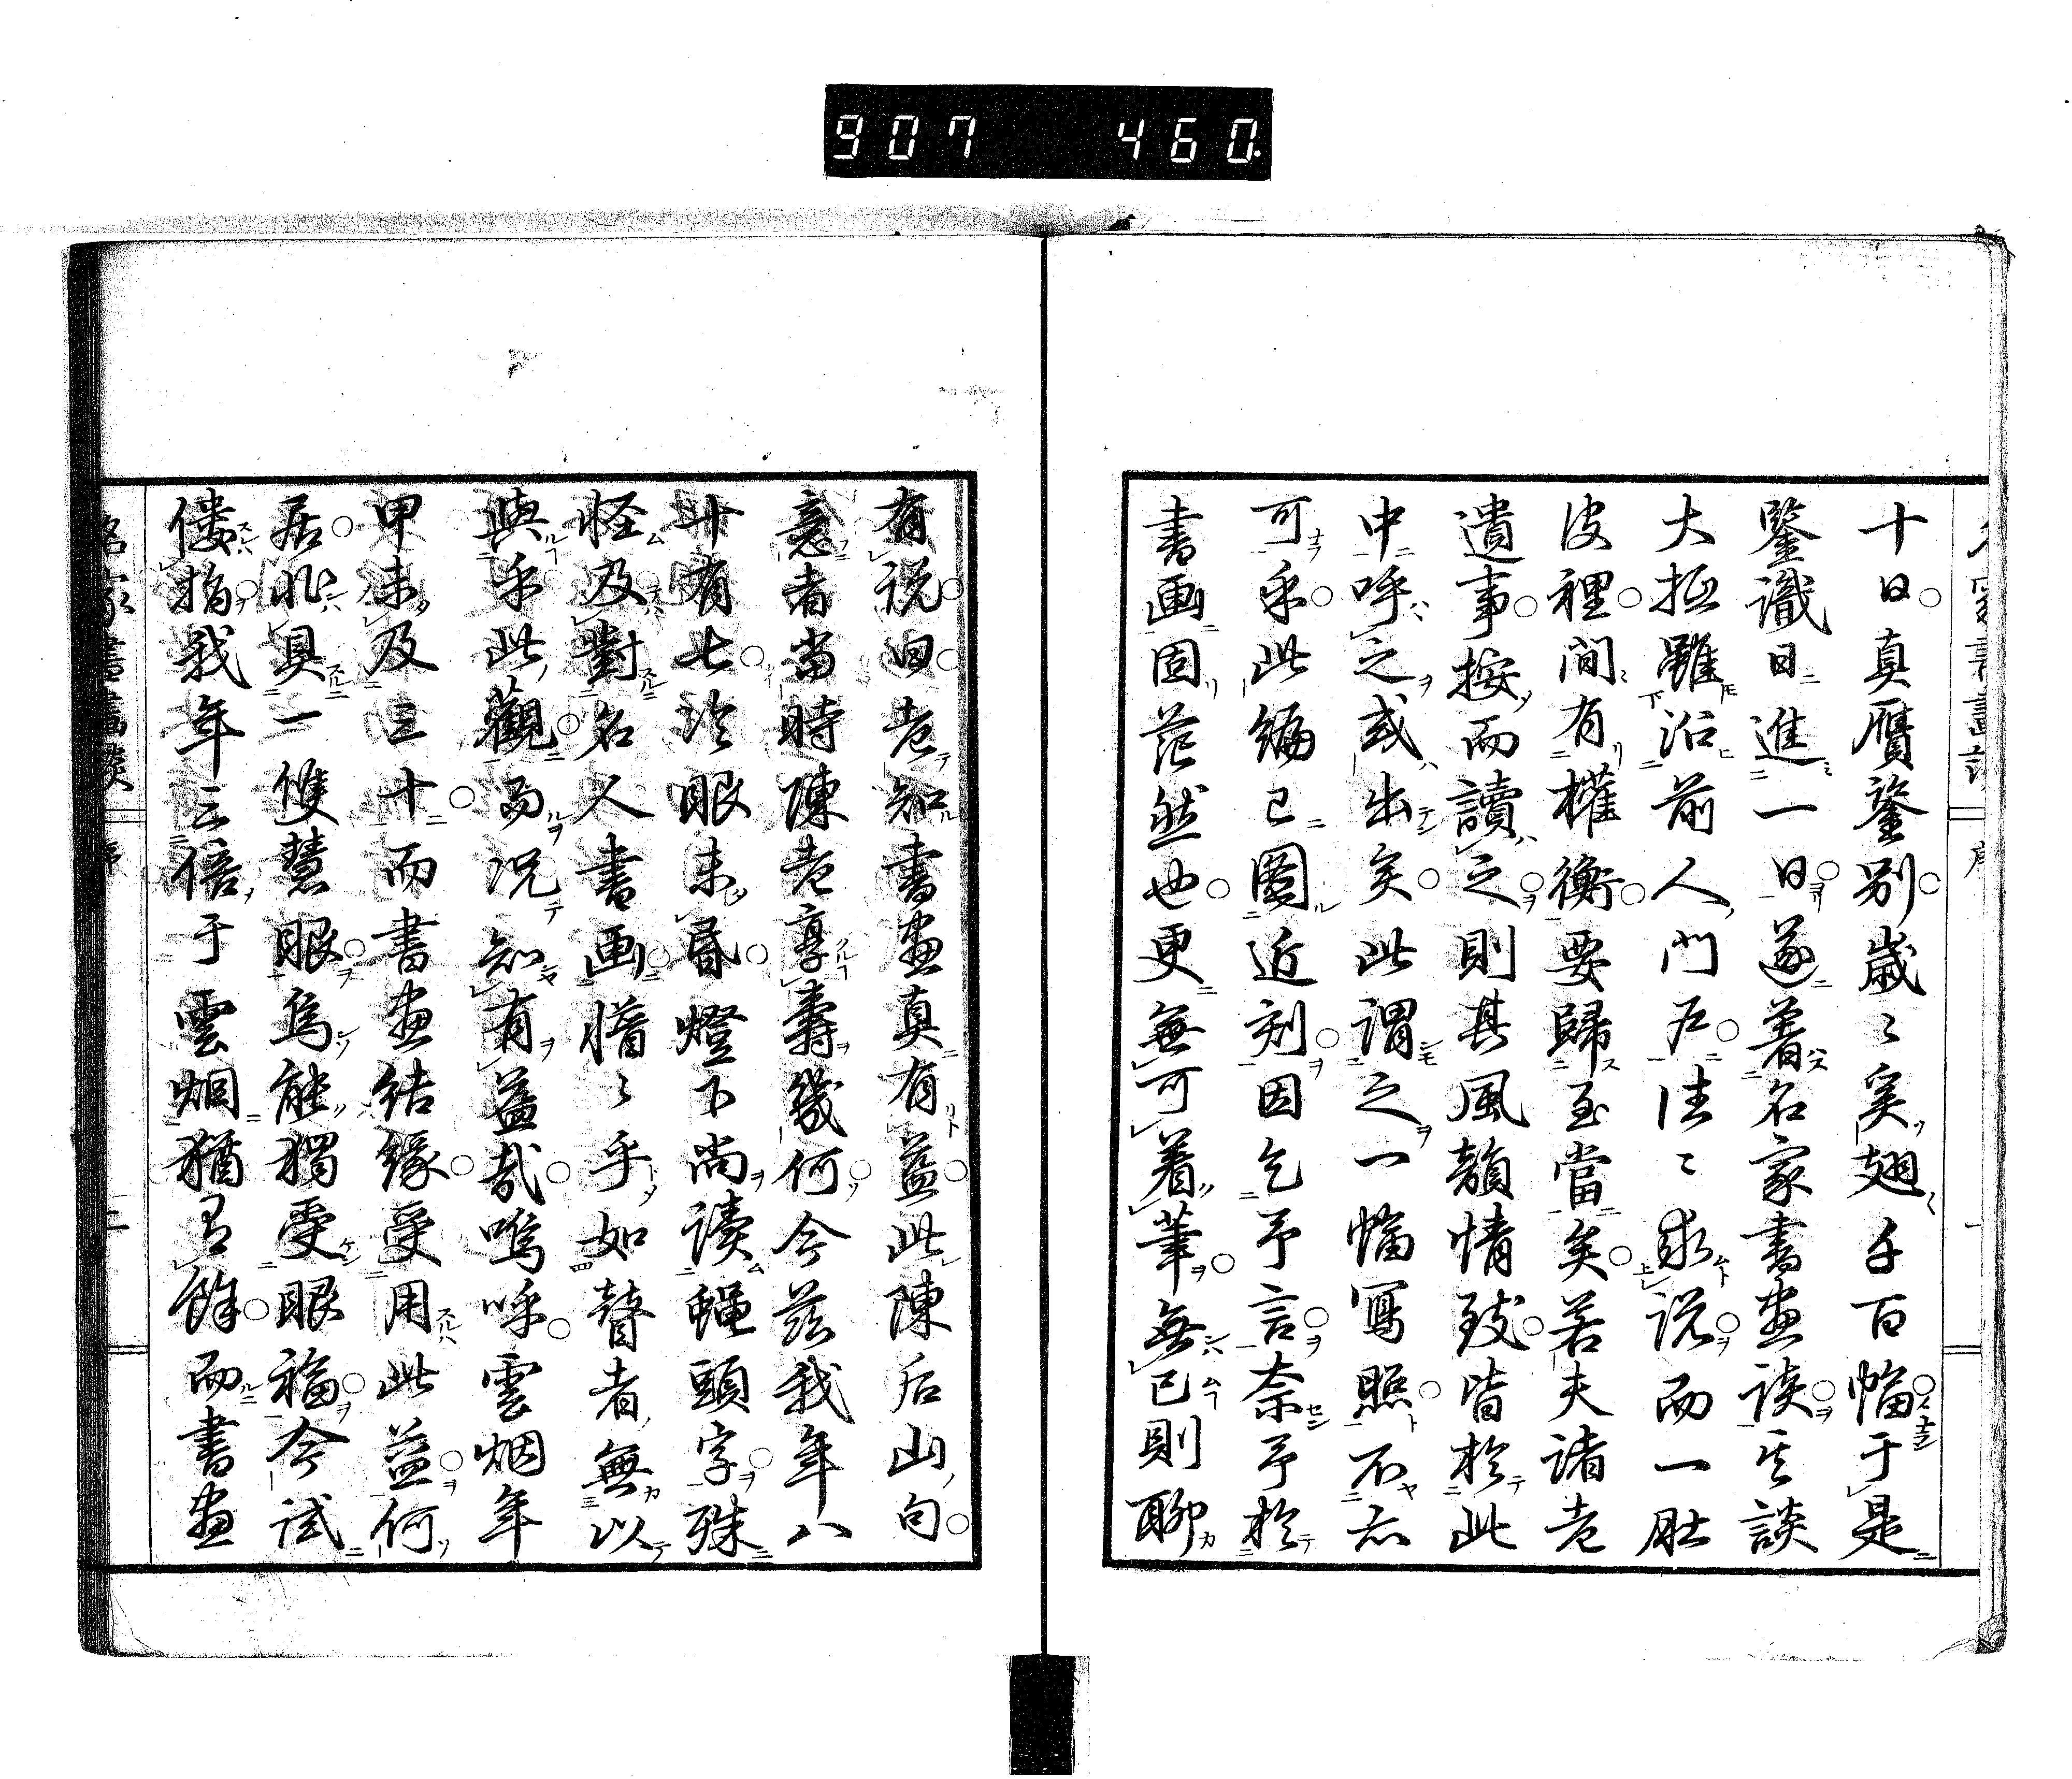 907 460
十日真贋鑒別歳〻矣翅千百幅于是
鑒識日進一日遂著名家書画談其談
大抵雖沿前人門戸往〻求説而一肚
皮裡間有權衡要歸至當矣若夫諸老
遺事按而讀之則其風韻情致皆於此
中呼之或出矣此謂之一幅寫照不亦
可乎此編已圖近刻因乞予言奈予於
書画固茫然也更無可着筆無已則聊
有説曰老知書画真有益此陳后山句
意者当時陳老享壽幾何今茲我年八
十有七冷眼未昏燈下尚読蠅頭字殊
怪及對名人書画惜〻乎如瞽者無以
與乎此觀而況知有益哉嗚呼雲烟年
甲未及三十而書画結縁受用此益何
居非具一雙慧眼焉能獨受眼福今試
僂指我年三倍于雲烟猶有餘而書画
名家書畫談 序 二